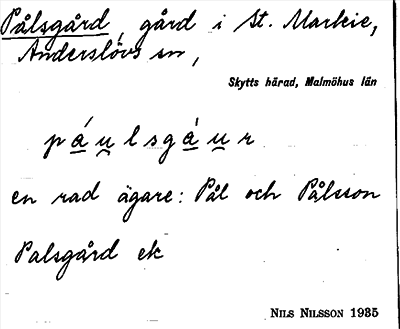 Pålsgård, gård i St. Markie,
Anderslövs sn,
Skytts härad, Malmöhus län
páu̯lsgáu̯r
en rad ägare: Pål och Pålsson
Palsgård ek
NILS NILSSON 1935